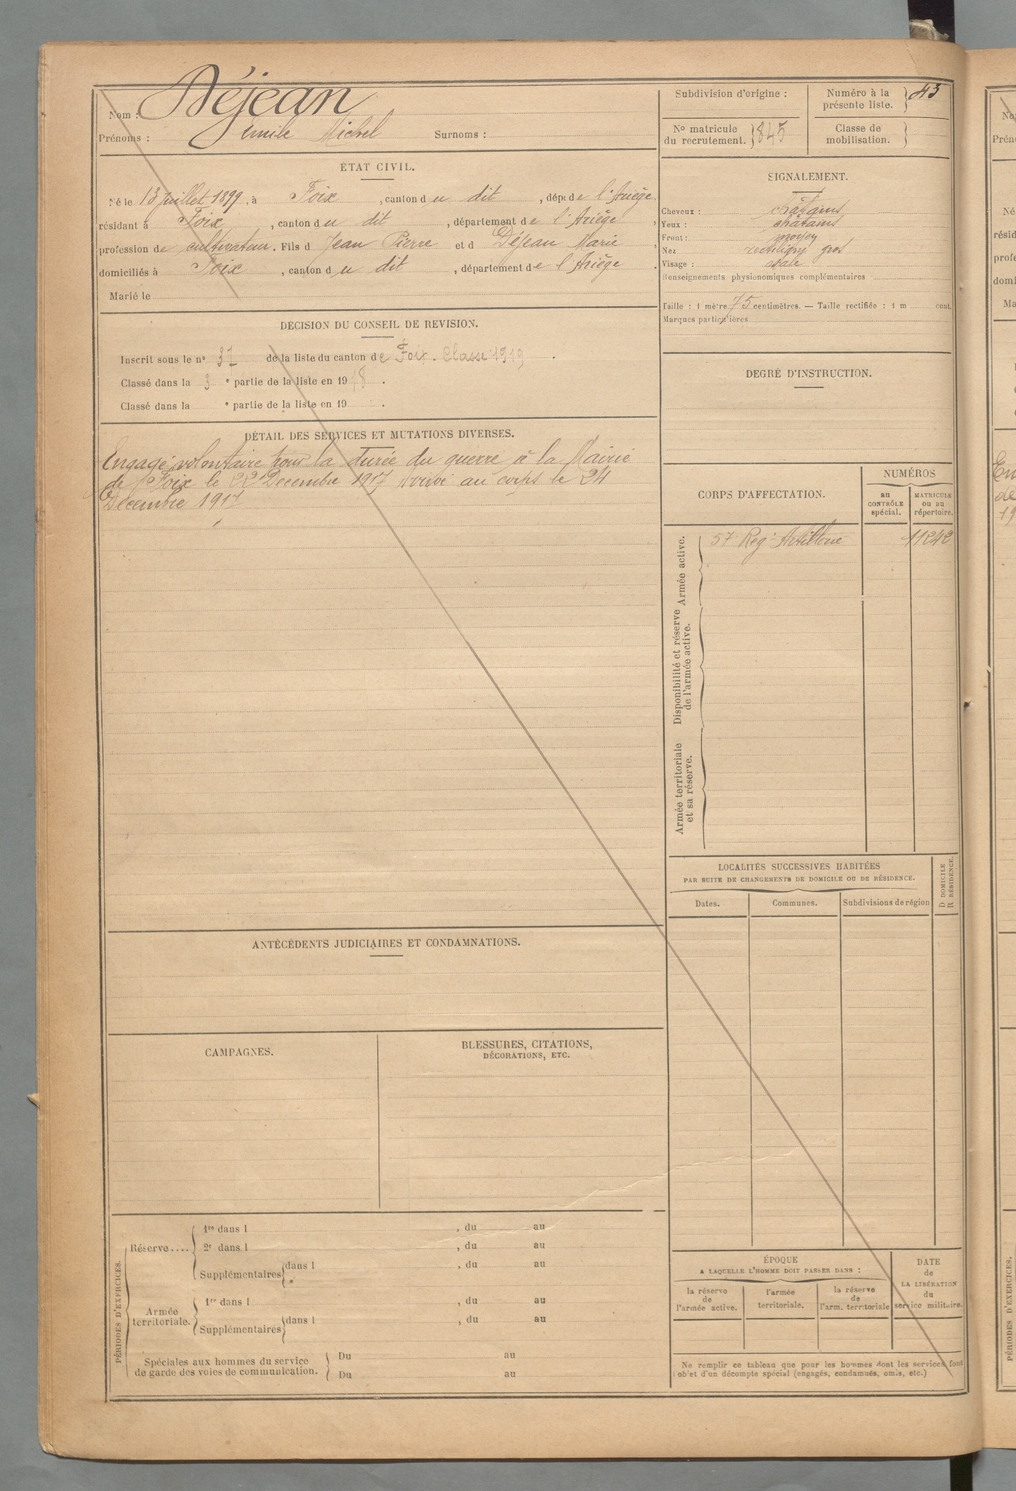 Nom : Déjean
Prénoms : Emile Michel Surnoms :
ÉTAT CIVIL.
Né le 13 juillet 1899, à Foix, canton du dit, dép. de l'Ariège,
résidant à Foix, canton du dit, département de l'Ariège,
profession de cultivateur. Fils d Jean Pierre et d Déjean Marie,
domiciliés à Foix, canton du dit, département de l'Ariège.
Marié le
DÉCISION DU CONSEIL DE REVISION.
Inscrit sous le n° 37 de la liste du canton de Foix. Classe 1919.
Classé dans la 3e partie de la liste en 1918.
Classé dans la e partie de la liste en 19 .
DÉTAIL DES SERVICES ET MUTATIONS DIVERSES.
Engagé volontaire pour la durée du guerre à la Mairie
de Foix le 22 Decembre 1917 Arrivé au corps le 24
Décembre 1917
ANTÉCÉDENTS JUDICIAIRES ET CONDAMNATIONS.
CAMPAGNES.
BLESSURES, CITATIONS,
DÉCORATIONS, ETC.
PÉRIODES D'EXERCICES.
Réserve....
1re dans l , du au
2e dans l , du au
Supplémentaires dans l , du au
Armée
territoriale.
1re dans l , du au
Supplémentaires dans l , du au
Spéciales aux hommes du service
de garde des voies de communication.
Du au
Du au
Subdivision d'origine :
Numéro à la
présente liste. 43
No matricule
du recrutement. 845
Classe de
mobilisation.
SIGNALEMENT.
Cheveux : châtains
Yeux : châtains
Front : moyen
Nez rectiligne gros
Visage : ovale
Renseignements physionomiques complémentaires
Taille : 1 mètre 75 centimètres. — Taille rectifiée : 1 m cent.
Marques particulières
DEGRÉ D'INSTRUCTION.
CORPS D'AFFECTATION.
NUMÉROS
au
CONTRÔLE
spécial.
MATRICULE
ou au
répertoire.
Armée active.
57e Regt Artillerie 11242
Disponibilité et réserve
de l'armée active.
Armée territoriale
et sa réserve.
LOCALITÉS SUCCESSIVES HABITÉES
PAR SUITE DE CHANGEMENTS DE DOMICILE OU DE RÉSIDENCE.
Dates.
Communes.
Subdivisions de région
D DOMICILE
R RÉSIDENCE.
ÉPOQUE
A LAQUELLE L'HOMME DOIT PASSER DANS :
la réserve
de
l'armée active.
l'armée
territoriale.
la réserve
de
l'arm. territoriale
DATE
de
LA LIBÉRATION
du
service militaire.
Ne remplir ce tableau que pour les hommes dont les services font
l'objet d'un décompte spécial (engagés, condamnés, omis, etc.)